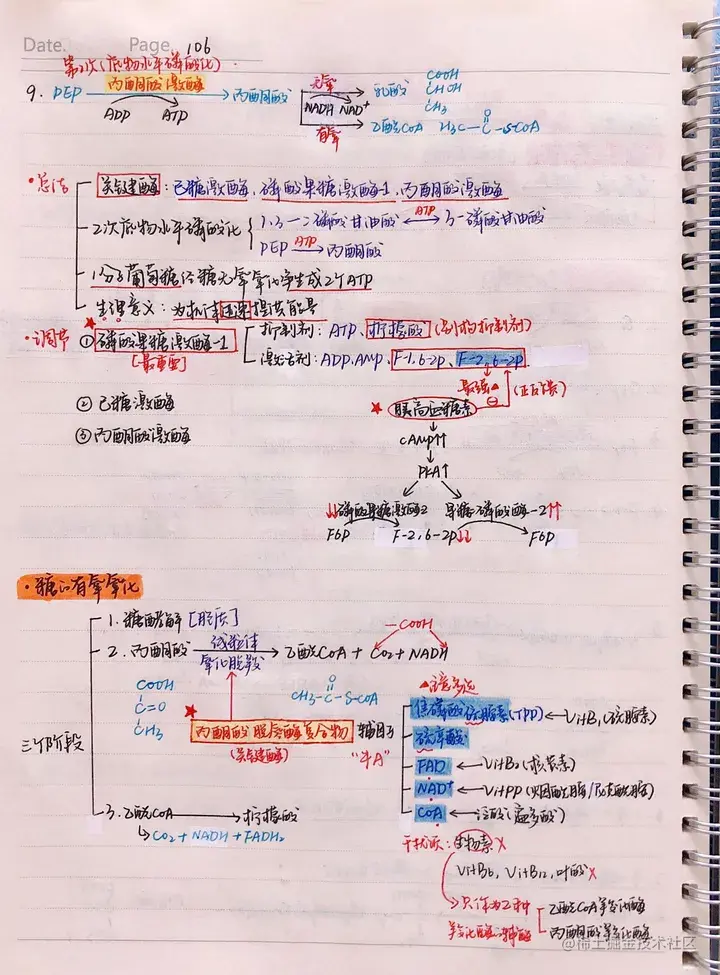 Date. Page. 106
第2次(底物水平磷酸化)
9. PEP 丙酮酸激酶 丙酮酸
ADP ATP
无氧 乳酸
NADH NAD⁺
COOH
CHOH
CH₃
有氧 乙酰CoA H₃C-C-S-CoA
O
·总结
关键酶:己糖激酶、磷酸果糖激酶-1、丙酮酸激酶
2次底物水平磷酸化
1,3-二磷酸甘油酸 ATP 3-磷酸甘油酸
PEP ATP 丙酮酸
1分子葡萄糖经糖无氧氧化净生成2个ATP
生理意义:为机体迅速提供能量
·调节 ①磷酸果糖激酶-1
[最重要]
抑制剂:ATP、柠檬酸(别构抑制剂)
激活剂:ADP、AMP、F-1,6-2p、F-2,6-2p
最强 (正反馈)
②己糖激酶
③丙酮酸激酶
胰高血糖素
cAMP↑↑
PKA↑
↓↓磷酸果糖激酶2 果糖磷酸酶-2↑↑
F6p F-2,6-2p↓↓ F6p
·糖的有氧氧化
三个阶段
1.糖酵解[胞质]
2.丙酮酸 线粒体 氧化脱羧 乙酰CoA + CO₂ + NADH
-COOH
COOH
C=O
CH₃
CH₃-C-S-CoA
O
丙酮酸脱氢酶复合物 辅因子
(关键酶) "牛A"
焦磷酸硫胺素(TPP) ← VitB₁(硫胺素)
硫辛酸
FAD ← VitB₂(核黄素)
NAD⁺ ← VitPP(烟酰胺/尼克酰胺)
CoA ← 泛酸(遍多酸)
3.乙酰CoA 柠檬酸
CO₂ + NADH + FADH₂
干扰项:生物素×
VitB₆、VitB₁₂、叶酸×
只作为2种 羧化酶的辅酶
乙酰CoA羧化酶
丙酮酸羧化酶
@稀土掘金技术社区